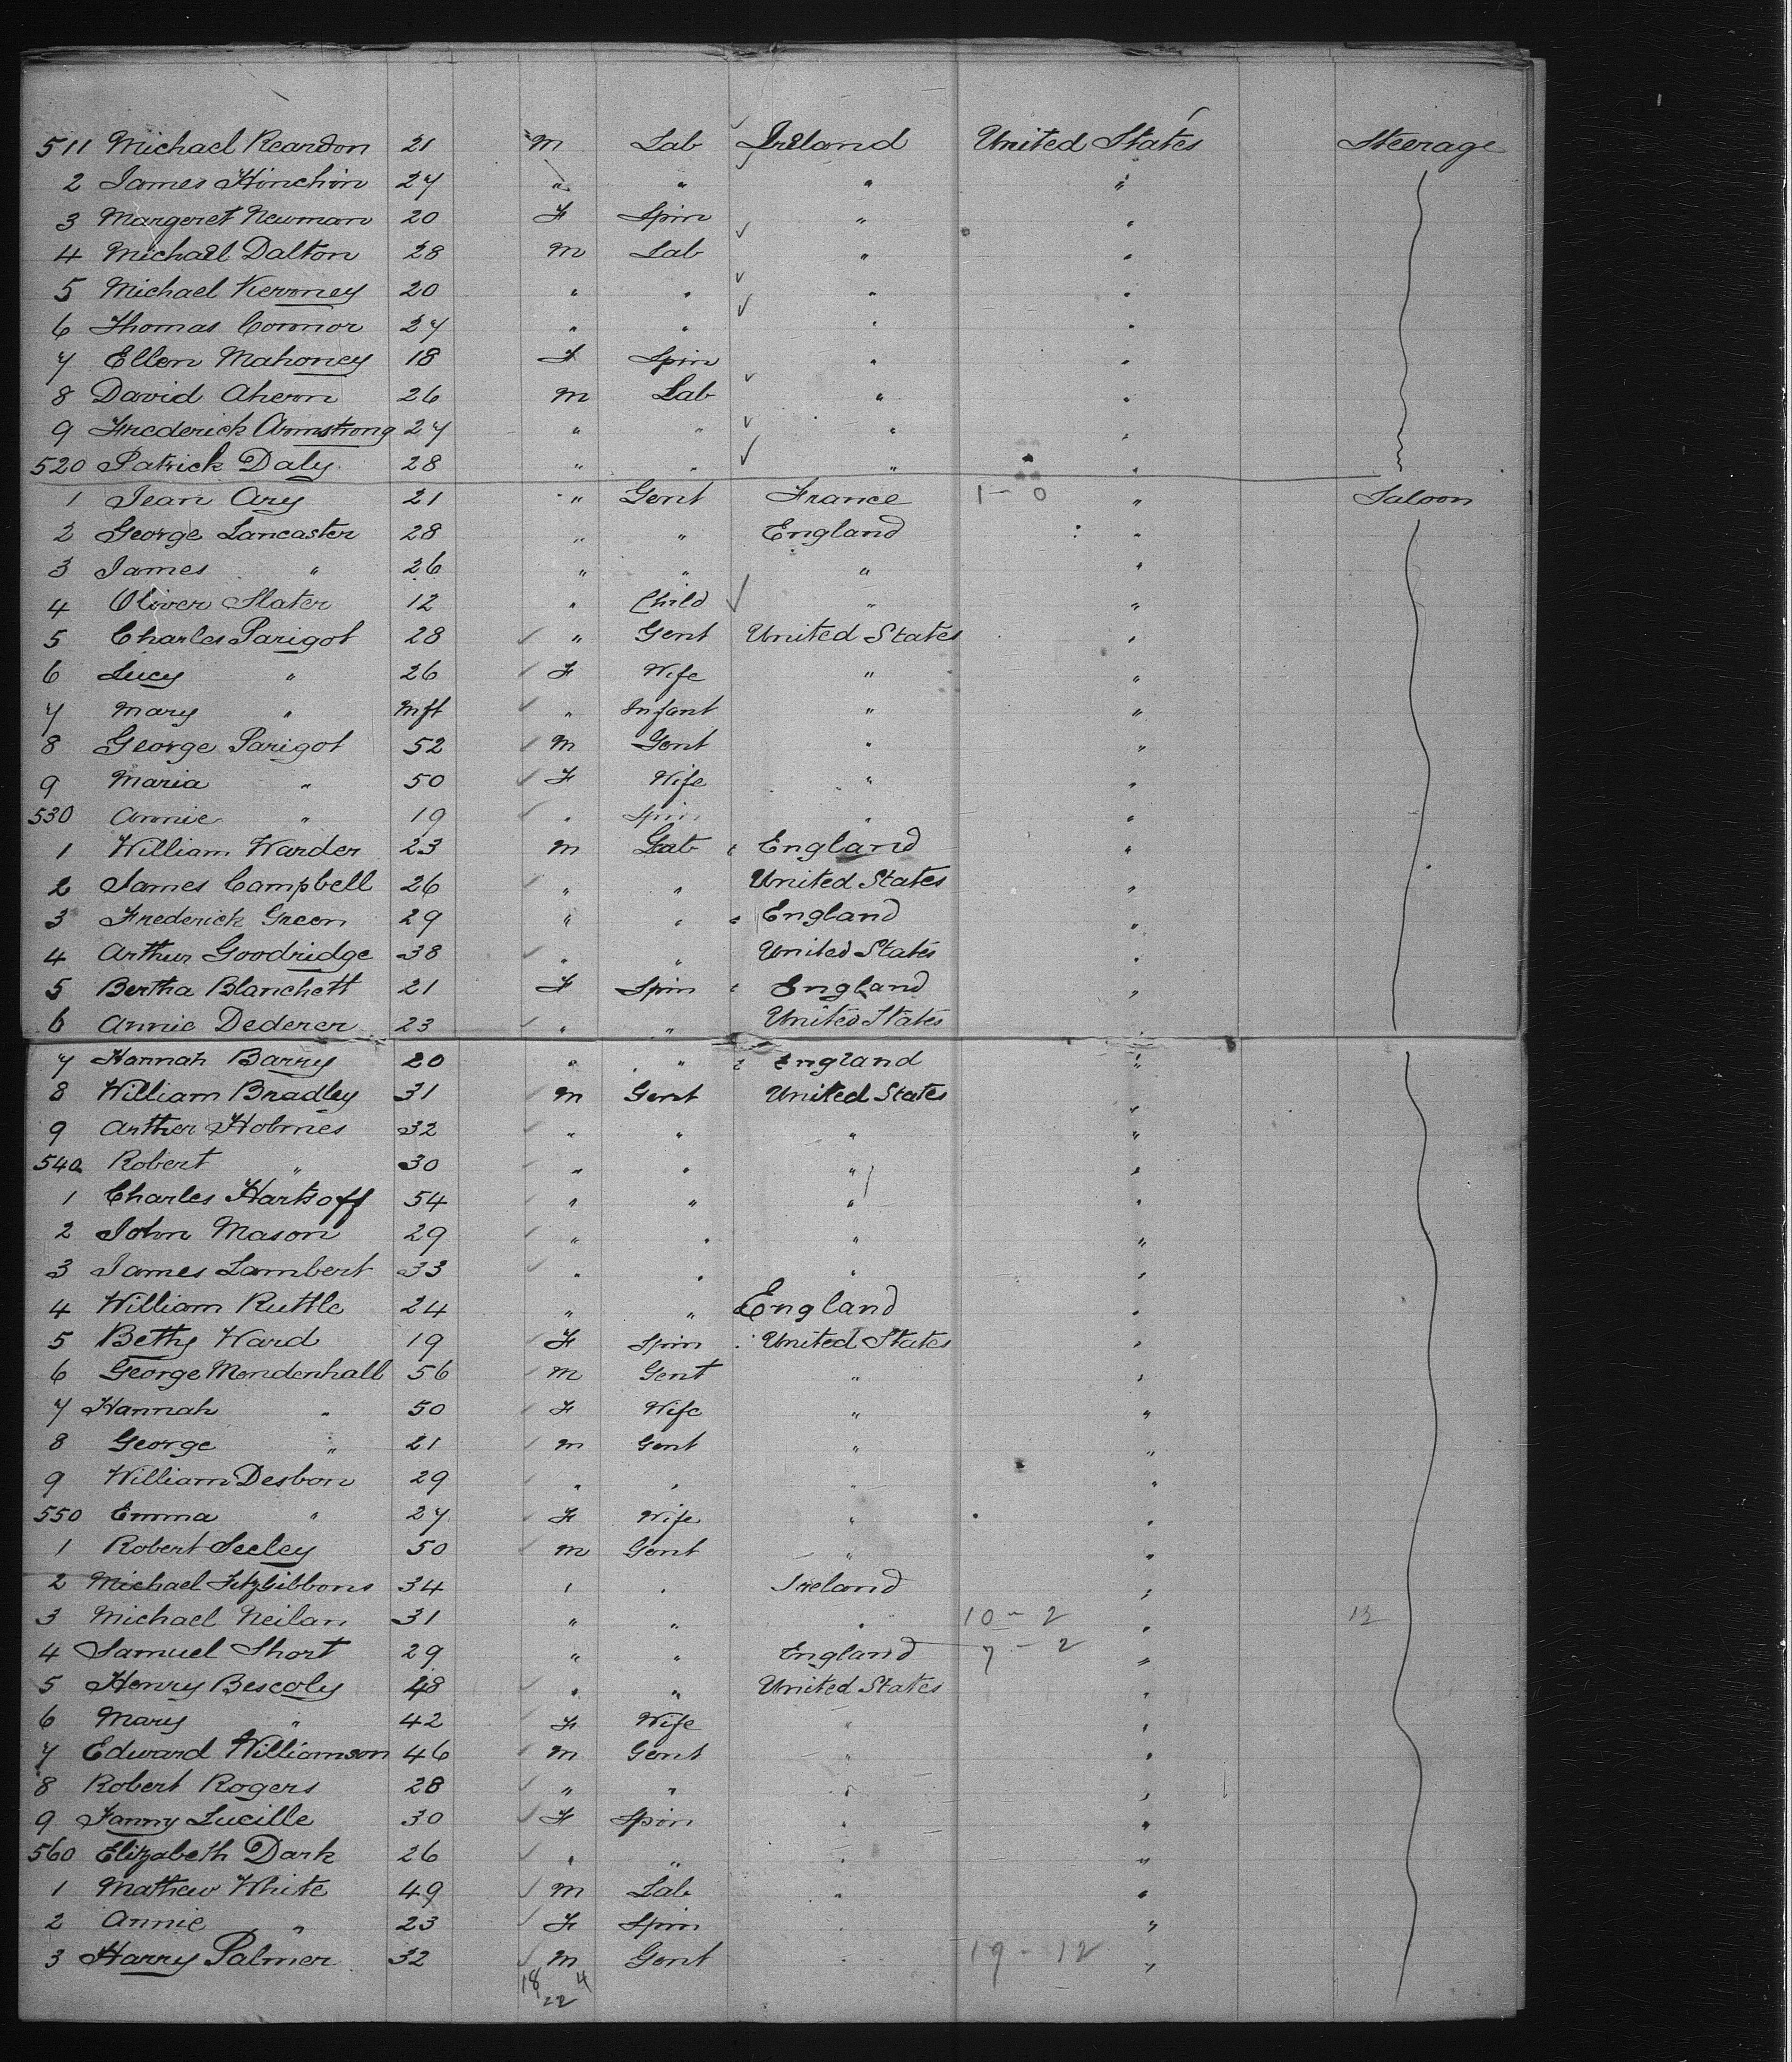 511 Michael Reardon 21 M Lab Ireland United States Steerage
2 James Hinchin 27 " " " "
3 Margeret Newman 20 F Spin " "
4 Michael Dalton 28 M Lab " "
5 Michael Keroney 20 " " " "
6 Thomas Connor 27 " " " "
7 Ellen Mahoney 18 F Spin " "
8 David Ahern 26 M Lab " "
9 Frederick Armstrong 27 " " " "
520 Patrick Daly 28 " " " "
1 Jean Ary 21 " Gent France 1 - 0 " Saloon
2 George Lancaster 28 " " England "
3 James " 26 " " " "
4 Oliver Slater 12 " Child " "
5 Charles Parigot 28 " Gent United States "
6 Lucy " 26 F Wife " "
7 Mary " Inft " Infant " "
8 George Parigot 52 M Gent " "
9 Maria " 50 F Wife " "
530 Annie " 19 " Spin " "
1 William Warder 23 M Lab England "
2 James Campbell 26 " " United States "
3 Frederick Green 29 " " England "
4 Arthur Goodridge 38 " " United States "
5 Bertha Blanchett 21 F Spin England "
6 Annie Dederer 23 " " United States "
7 Hannah Barry 20 " " England "
8 William Bradley 31 M Gent United States "
9 Arther Holmes 32 " " " "
540 Robert " 30 " " " "
1 Charles Hartsoff 54 " " " "
2 John Mason 29 " " " "
3 James Lambert 33 " " " "
4 William Ruttle 24 " " England "
5 Bethy Ward 19 F Spin United States "
6 George Mendenhall 56 M Gent " "
7 Hannah " 50 F Wife " "
8 George " 21 M Gent " "
9 William Desbon 29 " " " "
550 Emma " 27 F Wife " "
1 Robert Seeley 50 M Gent " "
2 Michael FitzGibbons 34 " " Ireland "
3 Michael Neilan 31 " " " 10 - 2 " 12
4 Samuel Short 29 " " England 7 - 2 "
5 Henry Bescoly 48 " " United States "
6 Mary " 42 F Wife " "
7 Edward Williamson 46 M Gent " "
8 Robert Rogers 28 " " " "
9 Fanny Lucille 30 F Spin " "
560 Elizabeth Dark 26 " " " "
1 Mathew White 49 M Lab " "
2 Annie " 23 F Spin " "
3 Harry Palmer 32 M Gent " 19 - 12 "
18 4
22